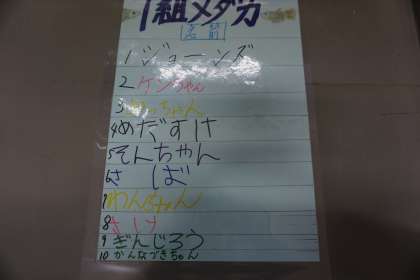 1組メダカ
名前
1 ジョーンズ
2 ケンちゃん
3 めっちゃん
4 めだすけ
5 そんちゃん
6 さば
7 めんちゃん
8 さけ
9 ぎんじろう
10 かんなづきちゃん